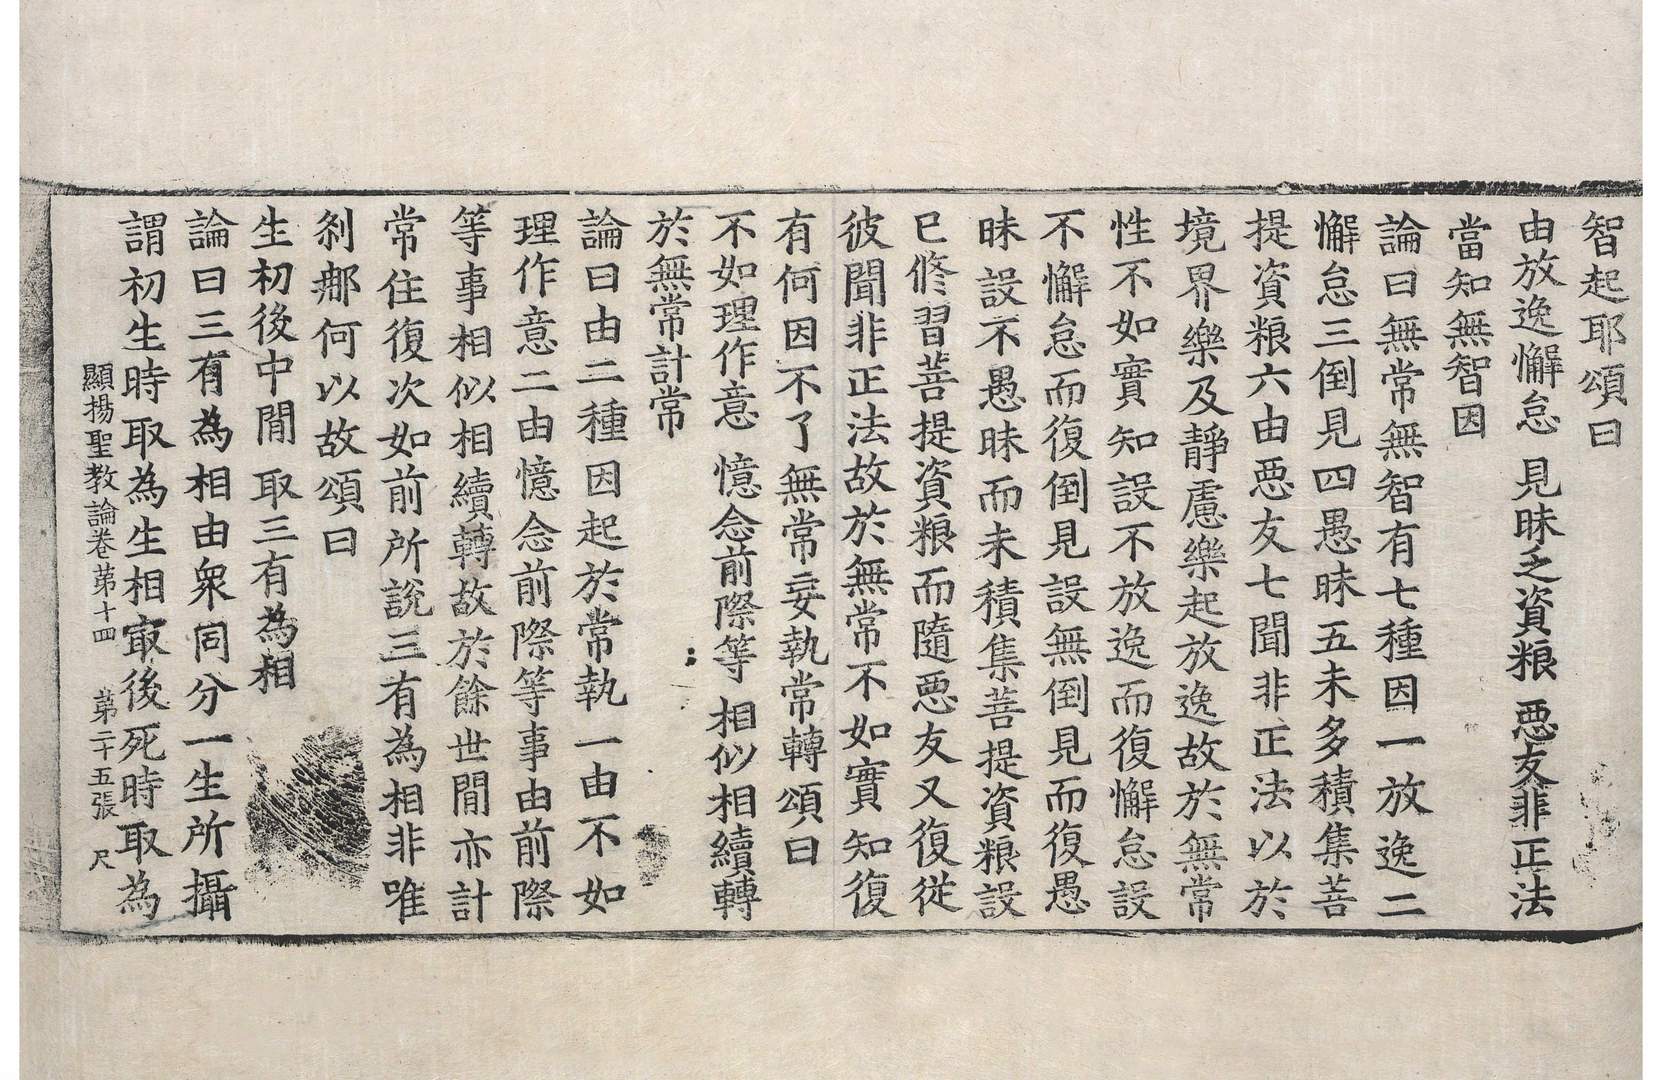 智起耶頌曰
由放逸懈怠 見昧乏資粮 惡友非正法
當知無智因
論曰無常無智有七種因一放逸二
懈怠三倒見四愚昧五未多積集菩
提資粮六由惡友七聞非正法以於
境界樂及靜慮樂起放逸故於無常
性不如實知設不放逸而復懈怠設
不懈怠而復倒見設無倒見而復愚
昧設不愚昧而未積集菩提資粮設
已修習菩提資粮而隨惡友又復從
彼聞非正法故於無常不如實知復
有何因不了無常妄執常轉頌曰
不如理作意 憶念前際等 相似相續轉
於無常計常
論曰由二種因起於常執一由不如
理作意二由憶念前際等事由前際
等事相似相續轉故於餘世間亦計
常住復次如前所說三有為相非唯
剎那何以故頌曰
生初後中間 取三有為相
論曰三有為相由衆同分一生所攝
謂初生時取為生相㝡後死時取為
顯揚聖教論卷苐十四 苐二十五張 尺